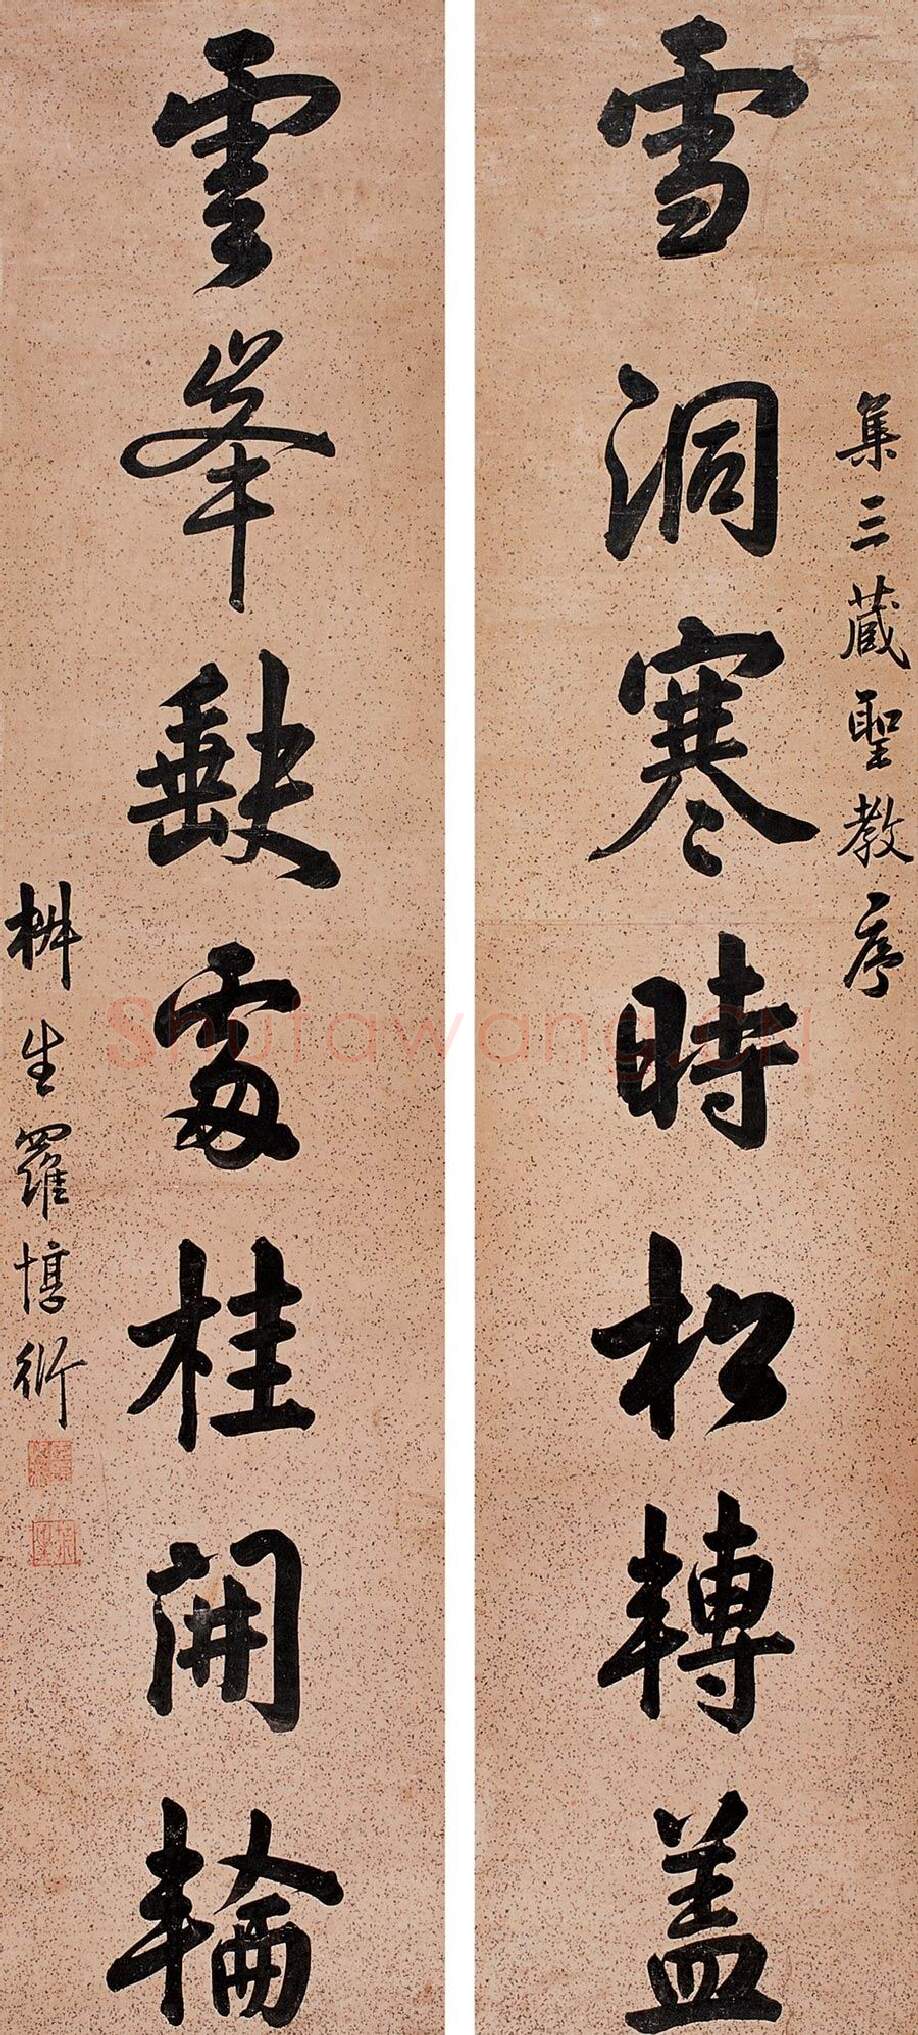 集三藏聖教序
雪洞寒時松轉蓋
雲峯缺處桂開輪
椒生羅惇衍
Shufawang.cn